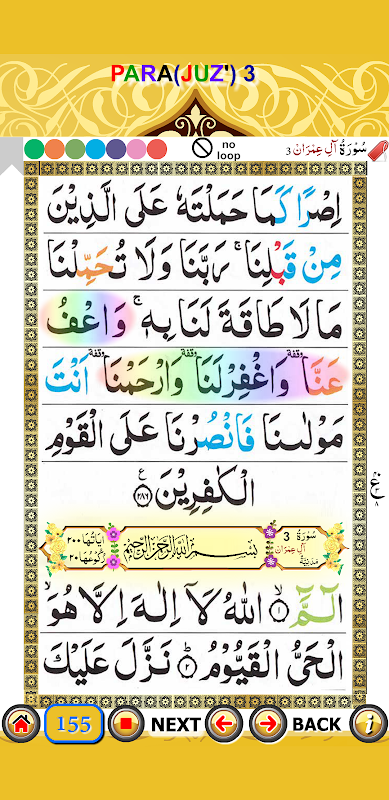 PARA(JUZ') 3
no
loop
3 سُوْرَةُ آلِ عِمْرَانَ
اِصْرًا كَمَا حَمَلْتَهٗ عَلَى الَّذِيْنَ
مِنْ قَبْلِنَا ۚ رَبَّنَا وَلَا تُحَمِّلْنَا
مَالَا طَاقَةَ لَنَا بِهٖ ۚ وَاعْفُ
عَنَّا وقفة وَاغْفِرْلَنَا وقفة وَارْحَمْنَا وقفة اَنْتَ
مَوْلٰىنَا فَانْصُرْنَا عَلَى الْقَوْمِ
الْكٰفِرِيْنَ ﴿۲۸۶﴾ ع
سُوْرَةُ 3
اٰلِ عِمْرَان
مَدَنِيَّةٌ
بِسْمِ اللّٰهِ الرَّحْمٰنِ الرَّحِيْمِ
اٰيَاتُهَا ۲۰۰
رُكُوْعُهَا ۲۰
الٓـمّٓ ﴿۱﴾ اللّٰهُ لَاۤ اِلٰهَ اِلَّا هُوَ ۙ
الْحَىُّ الْقَيُّوْمُ ﴿۲﴾ نَزَّلَ عَلَيْكَ
155
NEXT
BACK
i